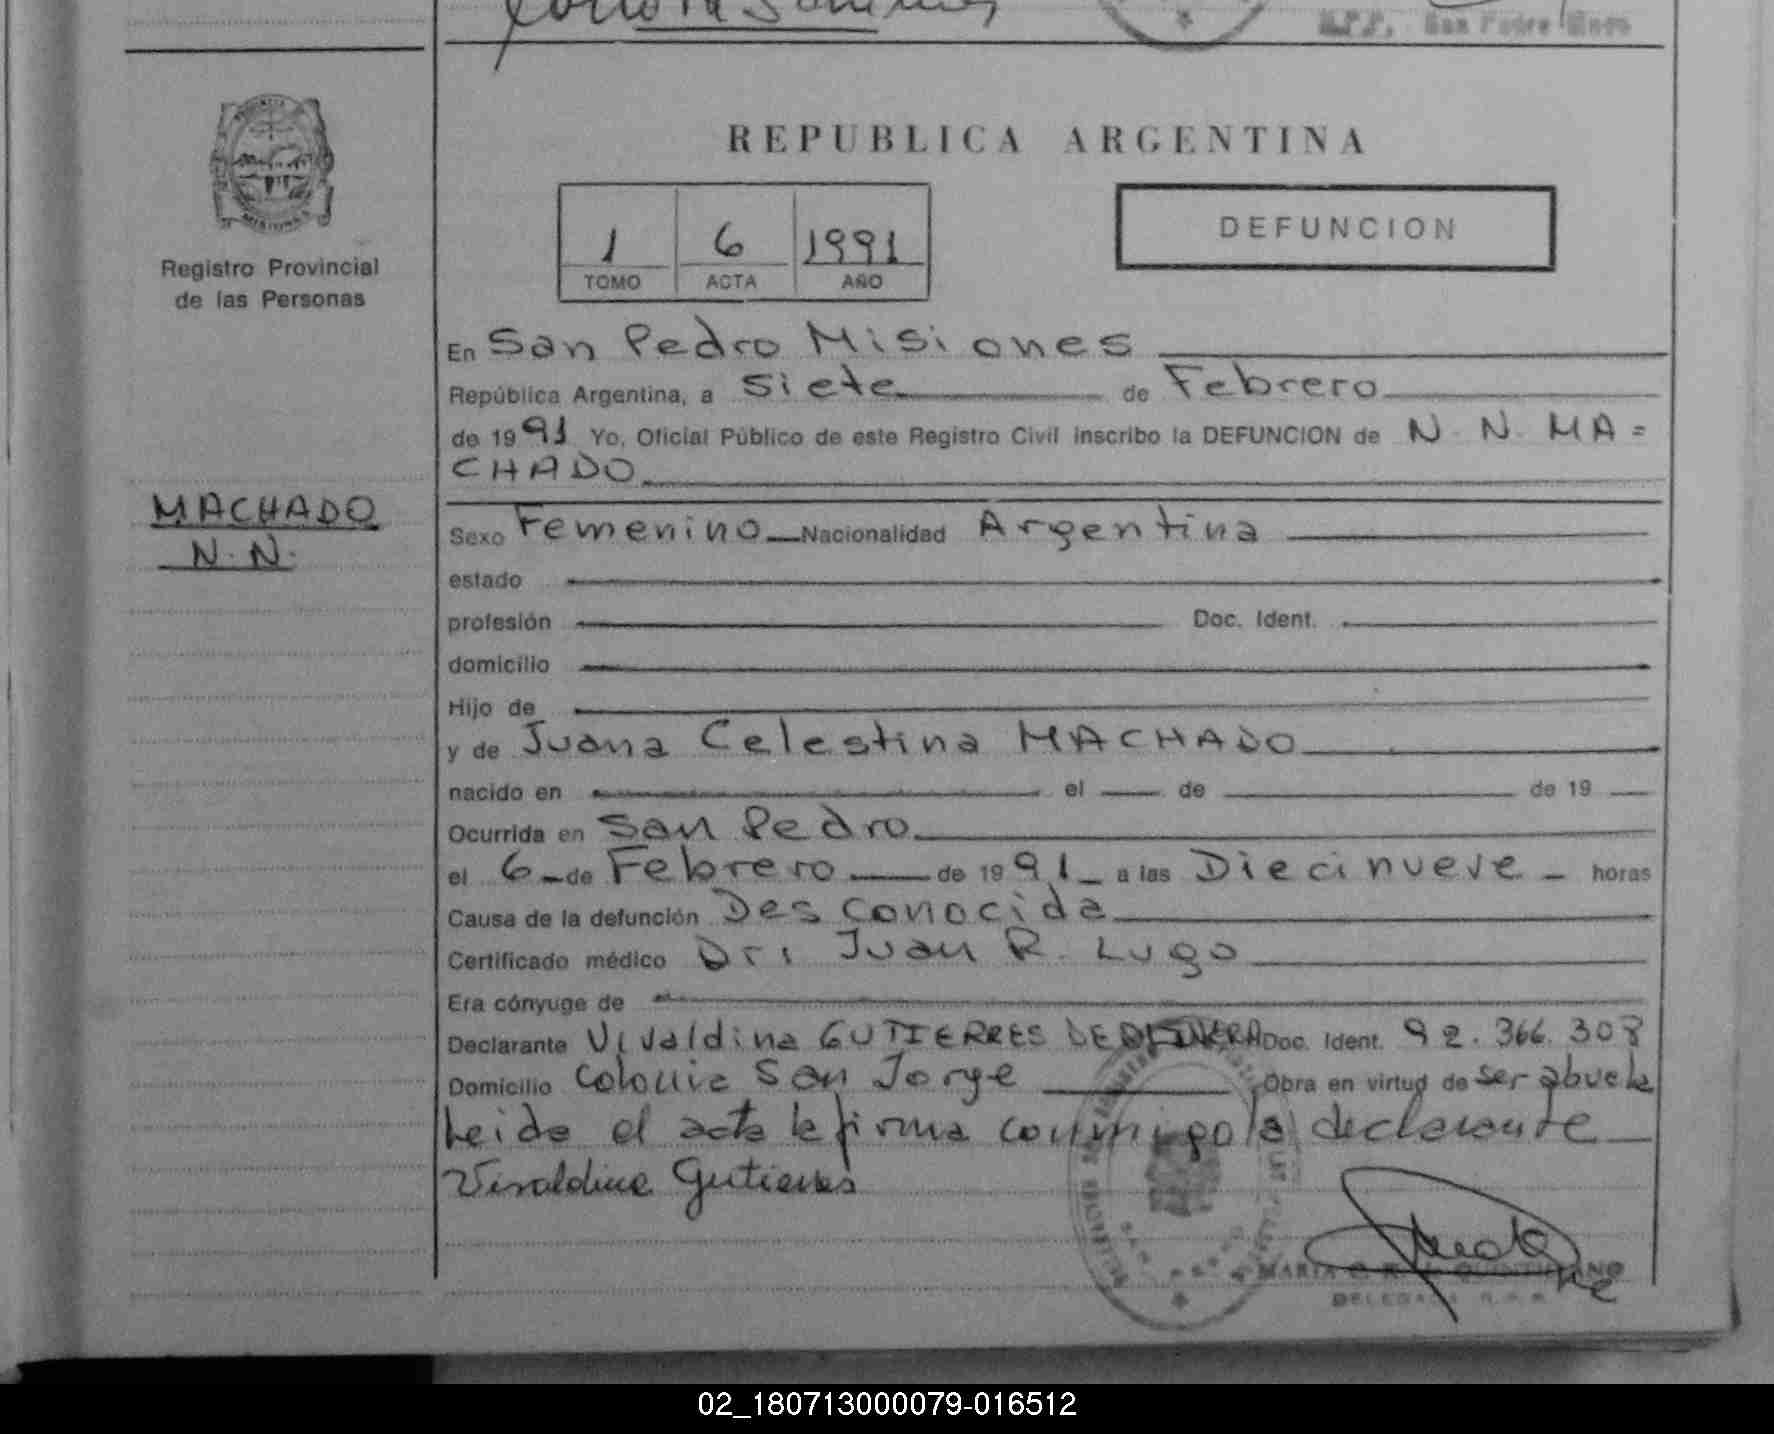 San Pedro Mnes
REPUBLICA ARGENTINA
1 6 1991
TOMO ACTA AÑO
DEFUNCION
Registro Provincial
de las Personas
En San Pedro Misiones
República Argentina, a siete de Febrero
de 1991 Yo, Oficial Público de este Registro Civil inscribo la DEFUNCION de N. N. MA=
CHADO
MACHADO
N. N.
Sexo Femenino Nacionalidad Argentina
estado
profesión Doc. Ident.
domicilio
Hijo de
y de Juana Celestina MACHADO
nacido en el de de 19
Ocurrida en San Pedro
el 6 de Febrero de 1991 a las Diecinueve horas
Causa de la defunción Desconocida
Certificado médico Dr: Juan R. Lugo
Era cónyuge de
Declarante Vivaldina GUTIERRES DE Doc. Ident. 92.366.308
Domicilio Colonia San Jorge Obra en virtud de ser abuela
Leida el acta la firma conmigo la declarante
Vivaldina Gutierres
MARIA QUINTILIANO
DELEGADA R.P.P.
02_180713000079-016512